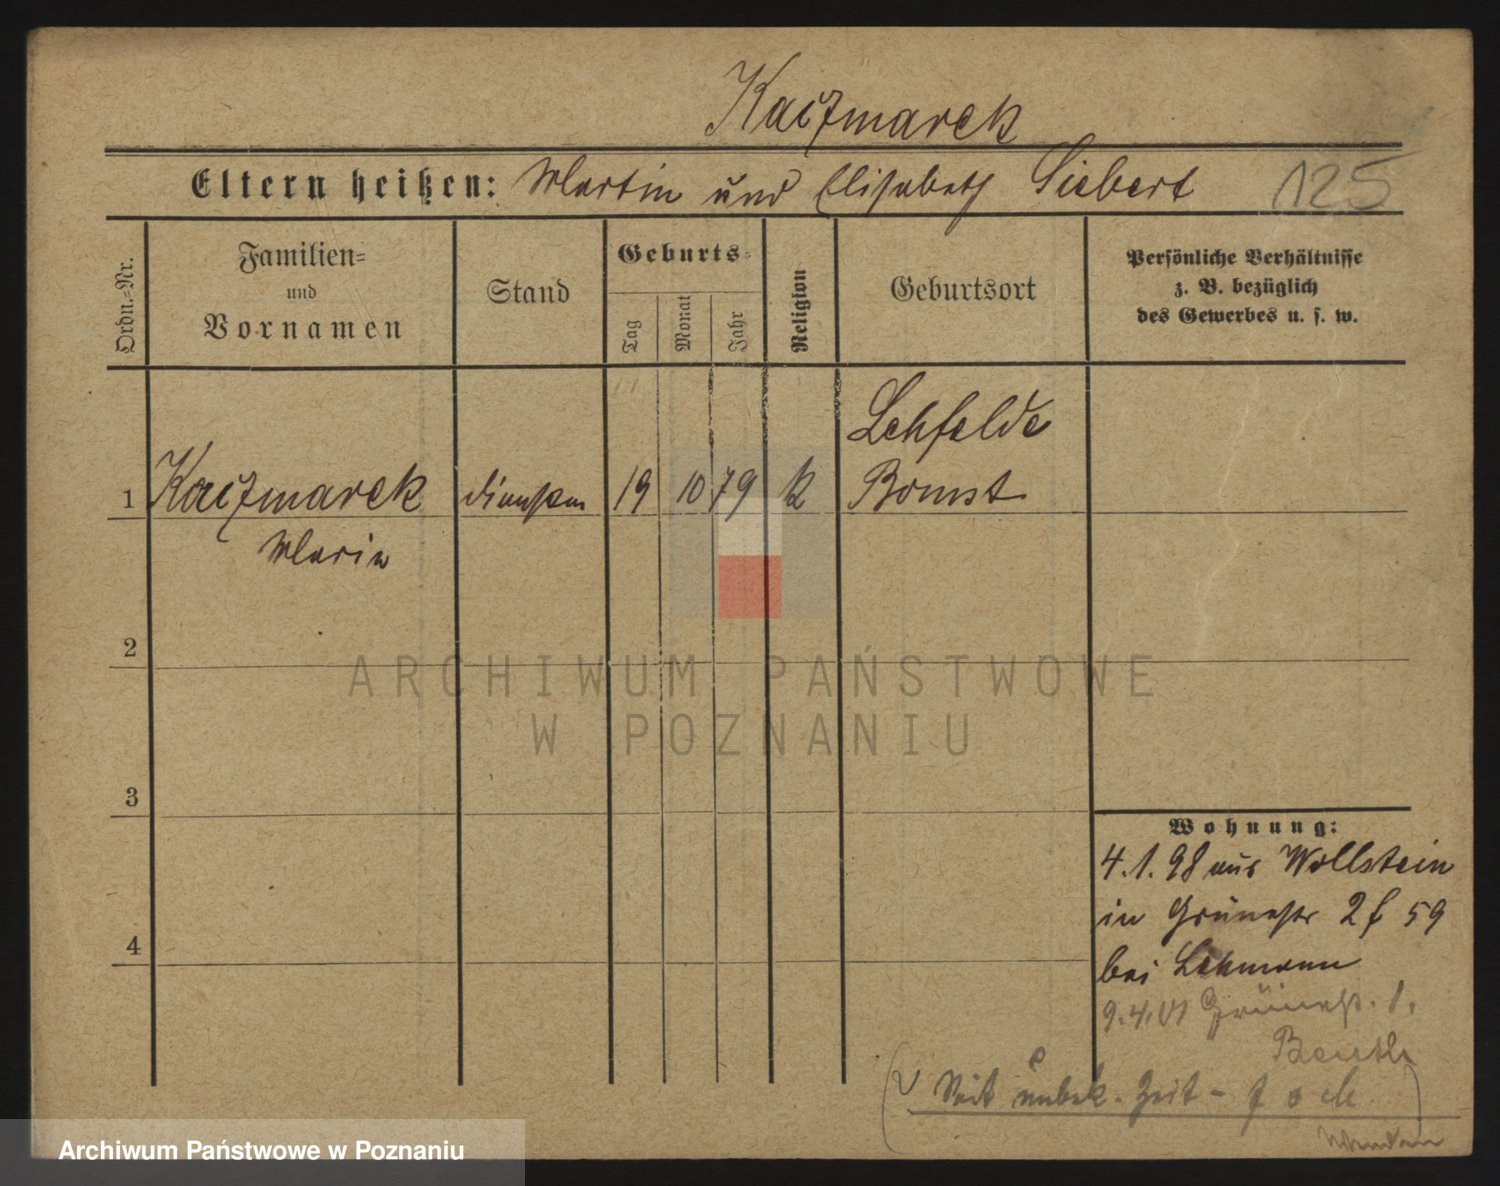 Kaczmarek
Eltern heißen: Martin und Elisabeth Siebert 125
Ordn.=Nr.
Familien=
und
Vornamen
Stand
Geburts=
Tag
Monat
Jahr
Religion
Geburtsort
Persönliche Verhältnisse
z. B. bezüglich
des Gewerbes u. s. w.
Lehfelde
1 Kaczmarek 19 10 79 k Bomst
Maria
2
ARCHIWUM PAŃSTWOWE
W POZNANIU
3
Wohnung:
4.1.98 aus Wollstein
in Grünestr 2 f 59
4
bei Lehmann
9.4.01 Grünestr. 1.
Seit unbek. Zeit -
Archiwum Państwowe w Poznaniu